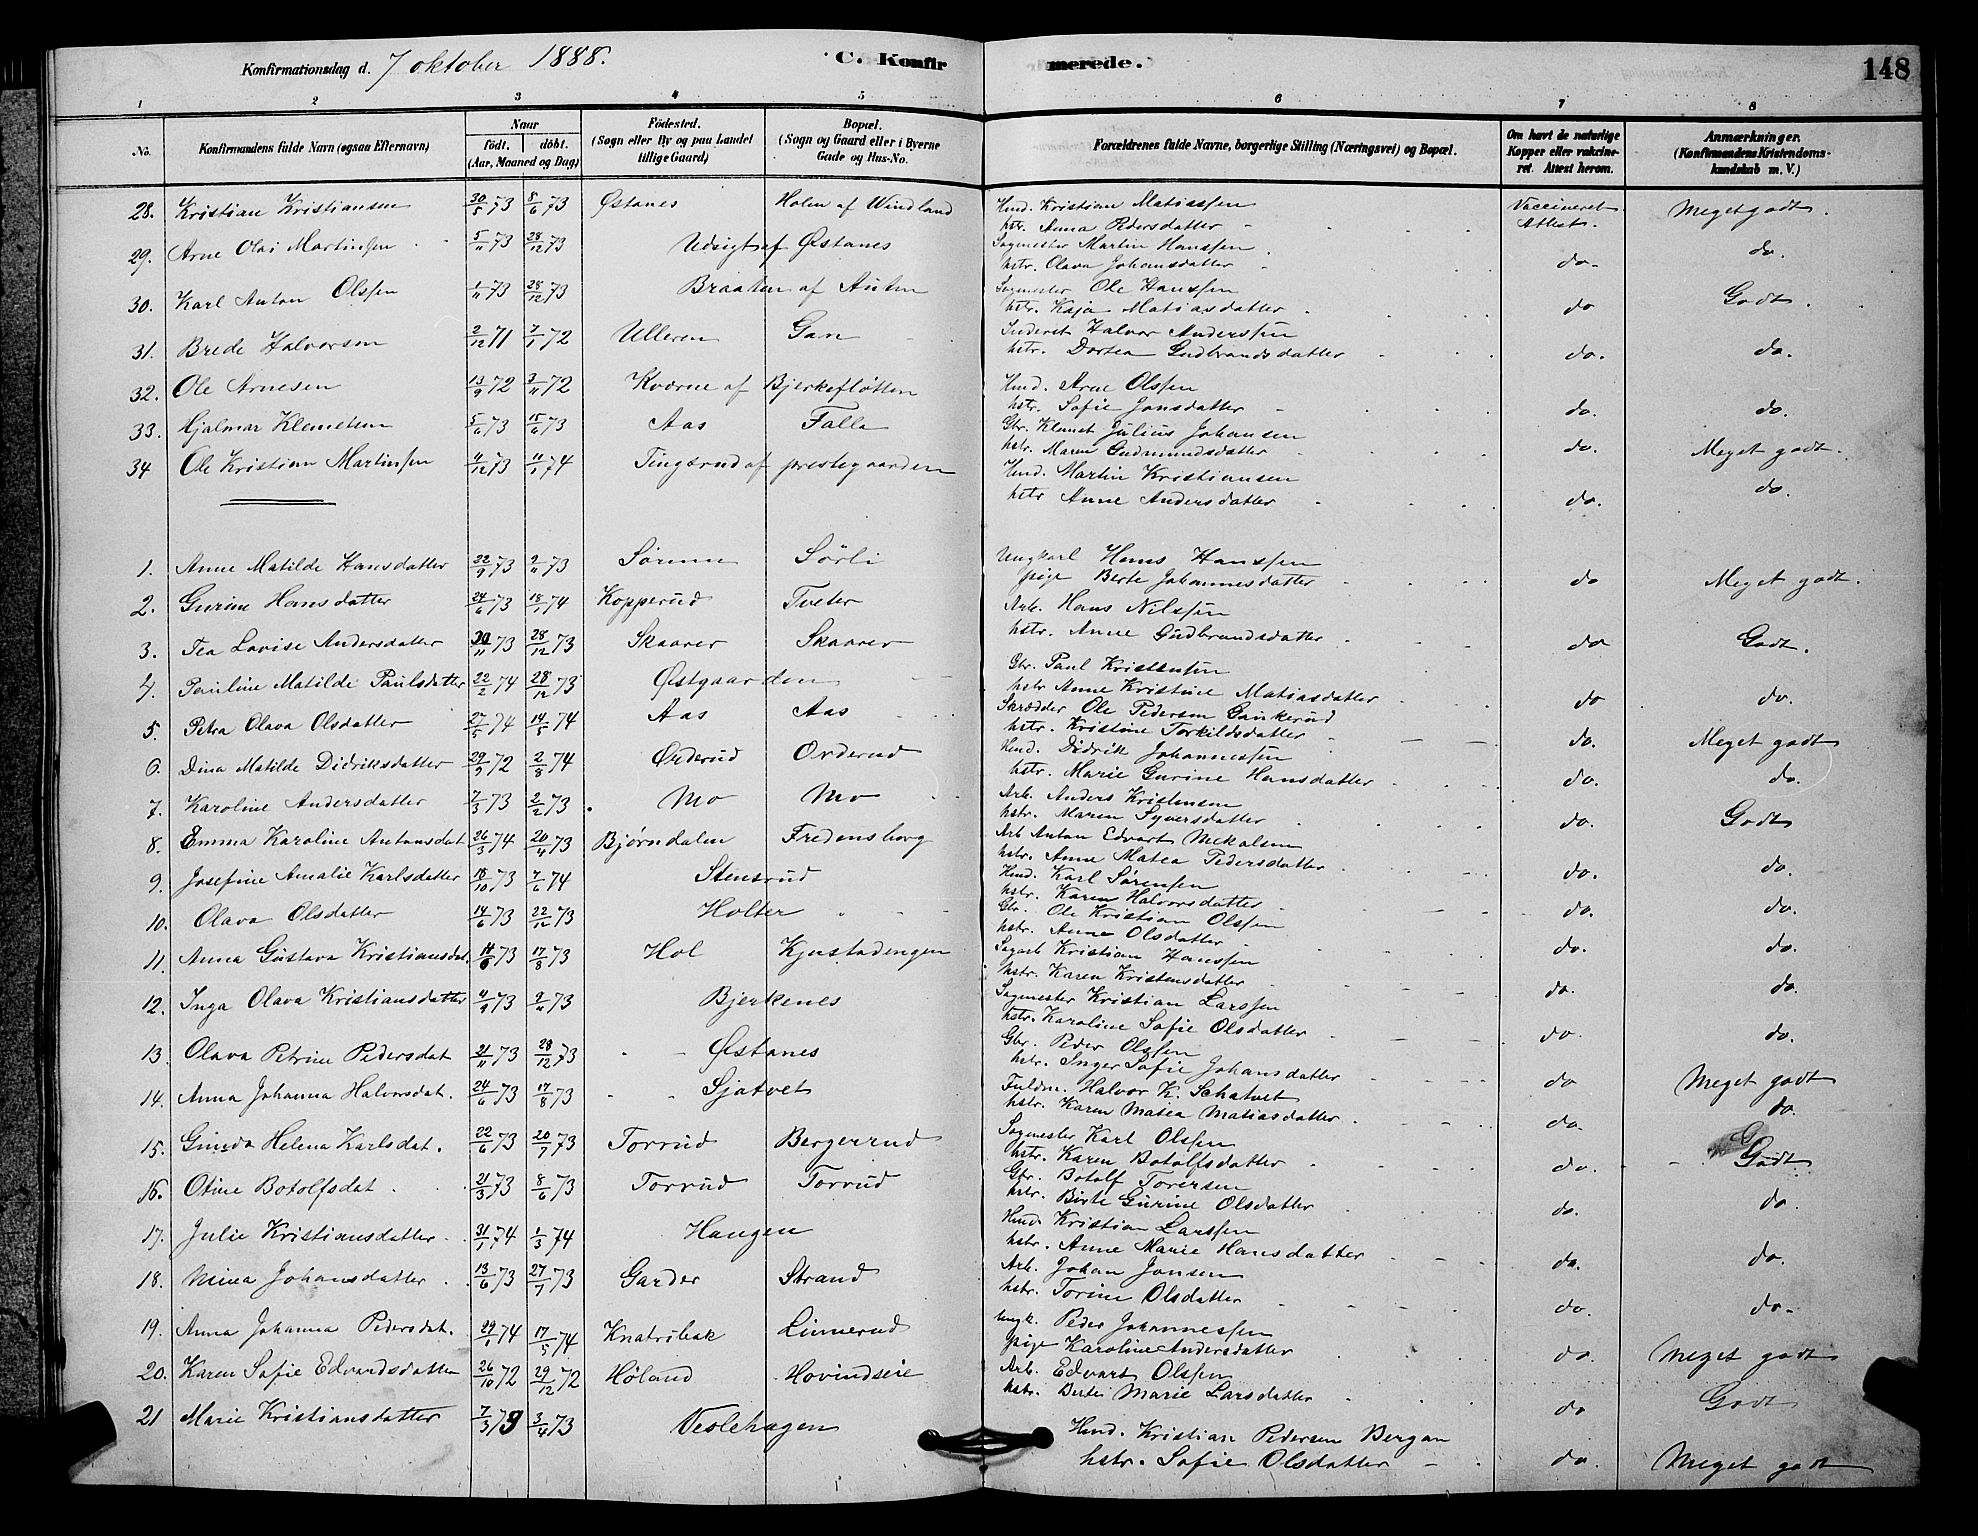 Konfirmationsdag d. 7 oktober 1888.
C. Konfirmerede.
148
1 2 3 4 5 6 7 8
No. Konfirmandens fulde Navn (ogsaa Efternavn) Naar født. døbt. (Aar, Maaned og Dag) Fødested. (Sogn eller By og paa Landet tillige Gaard) Bopæl. (Sogn og Gaard eller i Byerne Gade og Hus-No. Forældrenes fulde Navne, borgerlige Stilling (Næringsvei) og Bopæl. Om havt de naturlige Kopper eller vakcineret. Attest herom. Anmærkninger. (Konfirmandens Kristendomskundskab m. V.)
28. Kristian Kristiansen 30/5 73 8/6 73 Østanes Holen af Windland Hmd. Kristian Matiassen Vaccineret Meget godt.
hstr. Anna Pedersdatter Attest.
29. Arne Olai Martinsen 5/11 73 28/12 73 Udsigt af Østanes Sagmester Martin Hanssen do.
hstr. Olava Johansdatter do.
30. Karl Anton Olssen 1/11 73 28/12 73 Braaten af Auten Sagmester Ole Hanssen Godt.
hstr. Kaja Matiasdatter do
31. Brede Halvorsen 2/12 71 7/1 72 Ulleren Gan Inderst Halvor Anderssen
hstr. Dortea Gudbrandsdatter do. do.
32. Ole Arnesen 13/9 72 3/11 72 Kværne af Bjerkefløtten Hmd. Arne Olssen
hstr. Sofie Jonsdatter do. do.
33. Hjalmar Klemetsen 5/6 73 15/6 73 Aas Falla Gbr. Klemet Julius Johansen
hstr. Maren Gudmundsdatter do. Meget godt.
34 Ole Kristian Martinsen 11/12 73 11/1 74 Tingsrud af prestegaarden Hmd. Martin Kristiansen
hstr Anne Andersdatter do. do.
1. Anne Matilde Hansdatter 22/9 73 2/11 73 Sørum Sørli Ungkarl Hans Hanssen
pige Berte Johannesdatter do Meget godt.
2. Gurine Hansdatter 24/6 73 18/1 74 Kopperud Tveter Arb. Hans Nilssen
hstr. Anne Gudbrandsdatter do Godt.
3. Tea Lovise Andersdatter 30/11 73 28/12 73 Skaarer Skaarer
4. Pauline Matilde Paulsdatter 22/2 74 28/12 73 Østgaarden Gbr. Paul Kristensen
hstr Anne Kristine Matiasdatter do do.
5. Petra Olava Olsdatter 27/5 74 14/5 74 Aas Aas Skrædder Ole Pedersen Gankerud
hstr. Kristine Torkildsdatter do. Meget godt
6. Dina Matilde Didriksdatter 29/9 72 2/8 74 Orderud Orderud Hmd. Didrik Johannessen
hstr. Marie Gurine Hansdatter do. do.
7. Karoline Andersdatter 7/3 73 2/2 73 Mo Mo Arb. Anders Kristensen
hstr. Maren Syversdatter do. Godt
8. Emma Karoline Antonsdat 26/3 74 20/4 73 Bjørndalen Fredensborg Arb Anton Edvart Mekalsen
hstr. Anne Matea Pedersdatter do. do.
9. Josefine Amalie Karlsdatter 18/10 73 7/6 74 Stensrud Hmd. Karl Sørensen
hstr. Karen Halvorsdatter do. do.
10. Olava Olsdatter 14/6 73 22/12 73 Holter Gbr. Ole Kristian Olssen
hstr. Anne Olsdatter do. do.
11. Anna Gustava Kristiansdat. 14/6 73 17/8 73 Hol Kjustadengen Sagarb Kristian Hanssen
hstr. Karen Kristensdatter do. do.
12. Inga Olava Kristiansdatter 4/9 73 2/11 73 Bjerkenes Sagmester Kristian Larssen
hstr. Karoline Sofie Olsdatter do. do.
13. Olava Petrine Pedersdat 21/11 73 28/12 73 Østanes Gbr. Peder Olssen
hstr. Inger Sofie Johansdatter do Meget godt
14. Anna Johanna Halvorsdat. 24/6 73 17/8 73 Sjatvet Fuldm. Halvor K. Schatvet
hstr. Karen Matea Matiasdatter do. do.
15. Gunda Helena Karlsdat. 22/6 73 20/7 73 Torrud Bergerrud Sagmester Karl Olssen
hstr. Karen Botolfsdatter do. Godt
16. Otine Botolfsdat 21/3 73 8/6 73 Torrud Torrud Gbr. Botolf Torersen
hstr. Birte Gurine Olsdatter do. do.
17. Julie Kristiansdatter 31/1 74 1/3 74 Haugen Hmd Kristian Larssen
hstr. Anne Marie Hansdatter do. do.
18. Mina Johansdatter 13/6 73 27/7 73 Garder Strand Arb. Johan Jonsen
hstr. Torine Olsdatter do. do.
19. Anna Johanna Pedersdat. 29/1 74 17/5 74 Knatribak Linnerud Ungk. Peder Johannessen
pige Karoline Andersdatter do. Meget godt
20. Karen Sofie Edvardsdatter 26/10 72 29/12 72 Høland Hovindseie Arb. Edvart Olssen
hstr. Berte Marie Larsdatter do Godt
21 Marie Kristiansdatter 7/3 73 3/4 73 Veslehagen Hmd. Kristian Pedersen Bergan
hstr. Sofie Olsdatter do. Meget godt